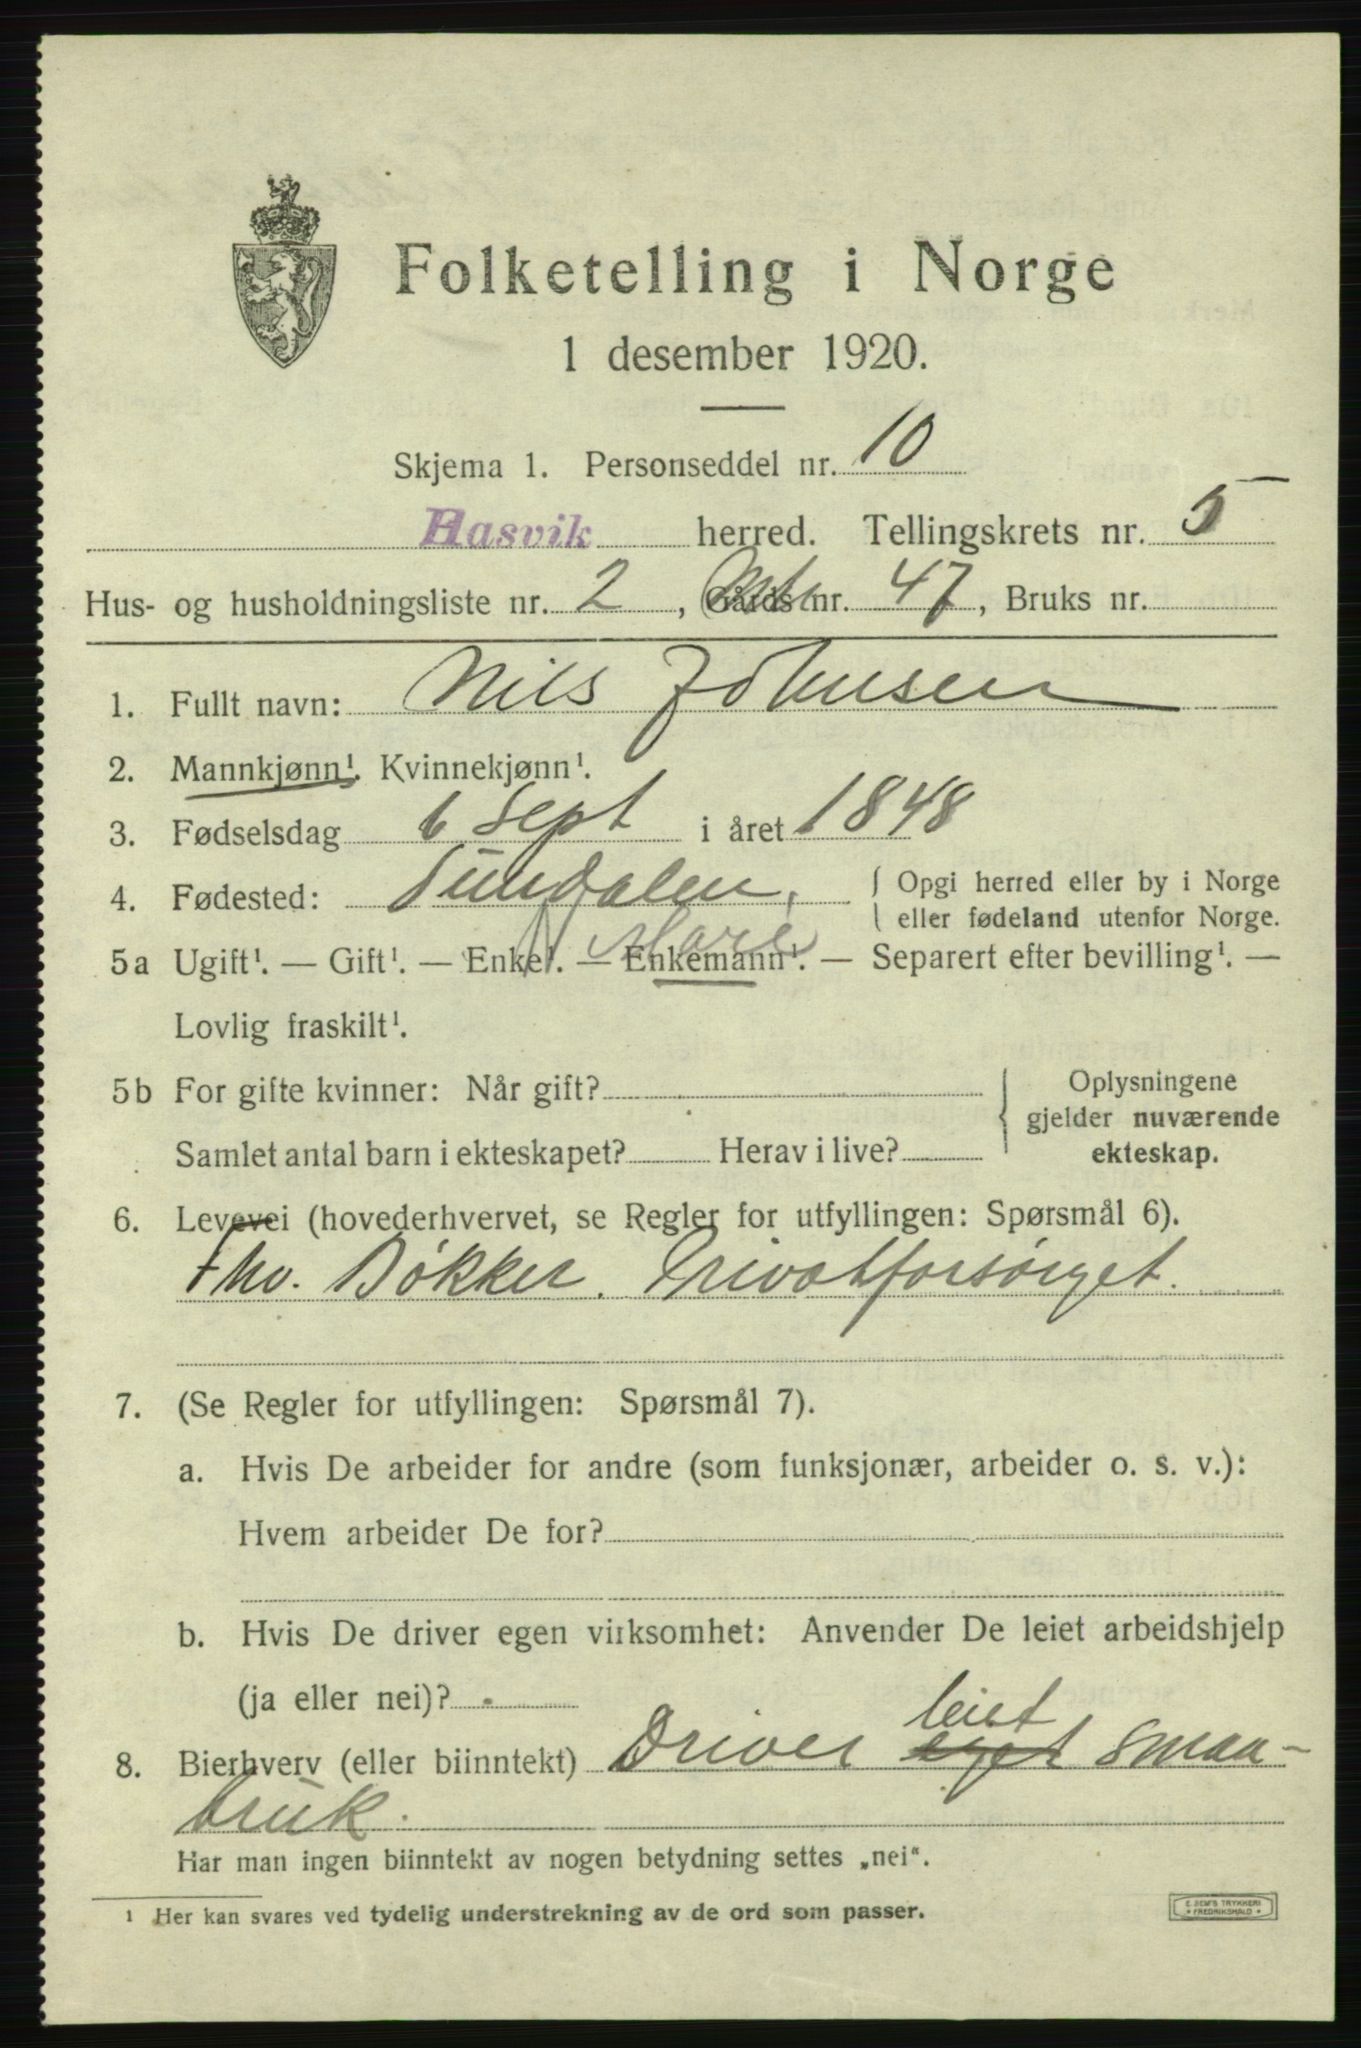 Folketelling i Norge
1 desember 1920.
Skjema 1. Personseddel nr. 10
Hasvik herred. Tellingskrets nr. 5
Hus- og husholdningsliste nr. 2, Gårds nr. 47, Bruks nr.
1. Fullt navn: Nils Johnsen
2. Mannkjønn¹. Kvinnekjønn¹.
3. Fødselsdag 6 Sept i året 1848
4. Fødested: Sundalen, { Opgi herred eller by i Norge
eller fødeland utenfor Norge.
N. Møre
5a Ugift¹. — Gift¹. — Enke¹. — Enkemann¹. — Separert efter bevilling¹. —
Lovlig fraskilt¹.
5b For gifte kvinner: Når gift? { Oplysningene
gjelder nuværende
Samlet antal barn i ekteskapet? Herav i live? ekteskap.
6. Levevei (hovederhvervet, se Regler for utfyllingen: Spørsmål 6).
Fhv. Bøkker. Privatforsørget.
7. (Se Regler for utfyllingen: Spørsmål 7).
a. Hvis De arbeider for andre (som funksjonær, arbeider o. s. v.):
Hvem arbeider De for?
b. Hvis De driver egen virksomhet: Anvender De leiet arbeidshjelp
(ja eller nei)?
leiet
8. Bierhverv (eller biinntekt) Driver eget smaa-
bruk.
Har man ingen biinntekt av nogen betydning settes „nei“.
¹ Her kan svares ved tydelig understrekning av de ord som passer.
E. SEM'S TRYKKERI
FREDRIKSHALD